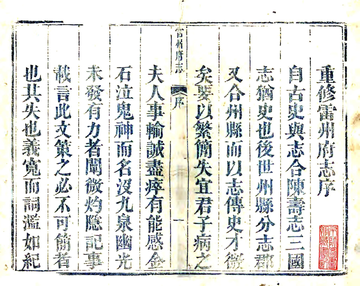 重修雷州府志序
自古史與志合陳壽志三國
志猶史也後世州縣分志郡
又合州縣而以志傳史才微
矣聚以繁簡失宜君子病之
夫人事輸誠盡瘁有能感金
石泣鬼神而名沒九泉幽光
未發有力者闡微灼隱記事
載言此文策之必不可簡者
也其失也義寬而詞濫如紀
雷州府志
序
一